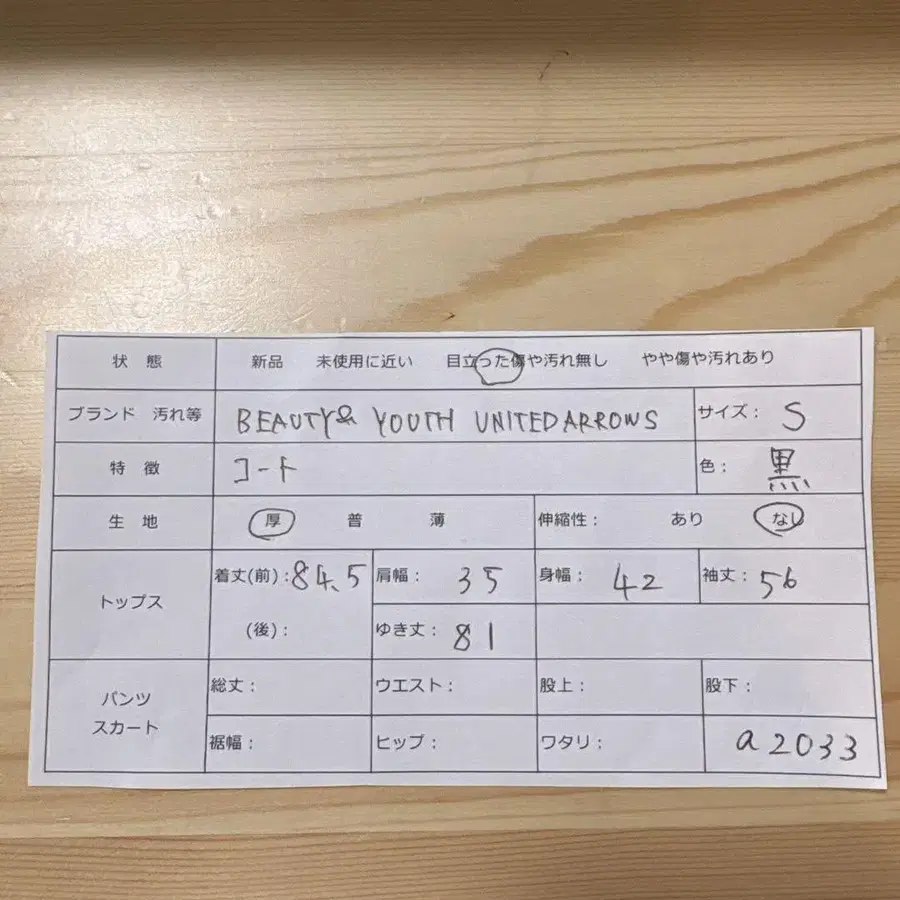 状 態 新品 未使用に近い 目立った傷や汚れ無し やや傷や汚れあり
ブランド 汚れ等 BEAUTY& YOUTH UNITED ARROWS サイズ: S
特 徴 コート 色: 黒
生 地 厚 普 薄 伸縮性: あり なし
トップス 着丈(前):84.5 肩幅: 35 身幅: 42 袖丈: 56
(後): ゆき丈: 81
パンツ スカート 総丈: ウエスト: 股上: 股下:
裾幅: ヒップ: ワタリ: a2033